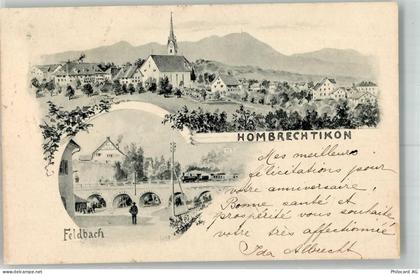 HOMBRECHTIKON
Mes meilleurs
félicitations pour
votre anniversaire!
Bonne santé et
prospérité vous souhaite,
votre très affectionnée
Ida Albrecht
Feldbach